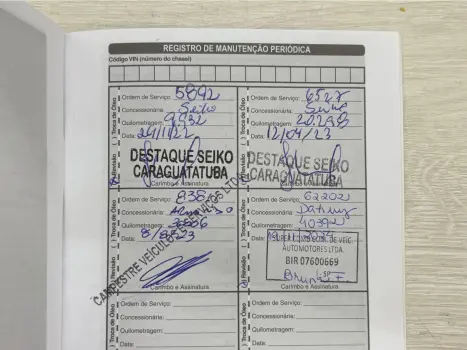 REGISTRO DE MANUTENÇÃO PERIÓDICA
Código VIN (número do chassi)
Ordem de Serviço: 5892
Concessionária: Seiko
Quilometragem: 9932
Data: 24/11/22
DESTAQUE SEIKO
CARAGUATATUBA
Carimbo e Assinatura
( ) Revisão ( ) Troca de Óleo
Ordem de Serviço: 6527
Concessionária: Seiko
Quilometragem: 20.298
Data: 12/04/23
DESTAQUE SEIKO
CARAGUATATUBA
Carimbo e Assinatura
( ) Revisão ( ) Troca de Óleo
Ordem de Serviço: 838
Concessionária:
Quilometragem:
Data:
CAMPESTRE VEÍCULOS E SERVIÇOS LTDA
Carimbo e Assinatura
( ) Revisão ( ) Troca de Óleo
Ordem de Serviço: 62202
Concessionária:
Quilometragem:
Data:
AUTOMOTORES LTDA.
BIR 07600669
( ) Revisão ( ) Troca de Óleo
Ordem de Serviço:
Concessionária:
Quilometragem:
Data:
Ordem de Serviço:
Concessionária:
Quilometragem:
Data: